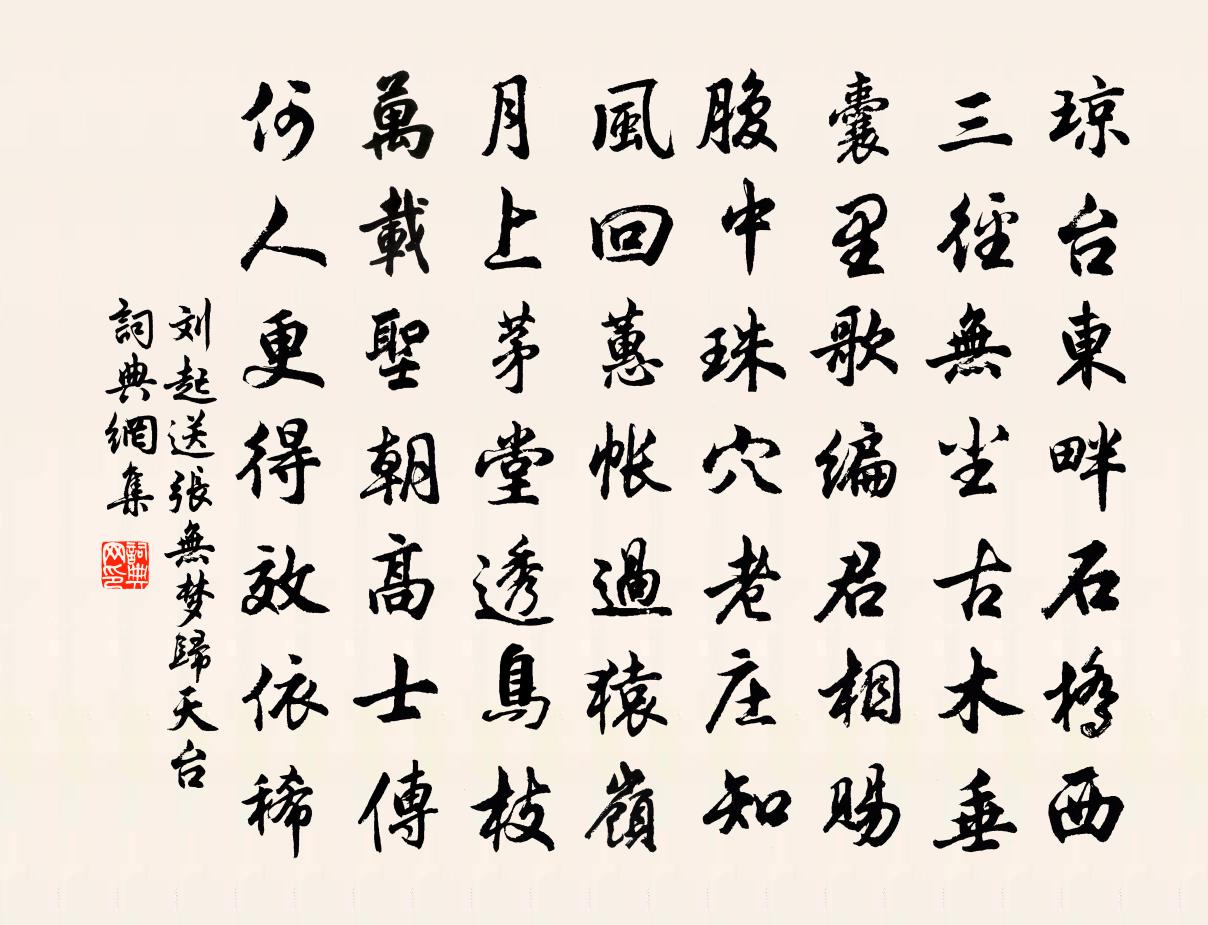 琼台東畔石橋西
三徑無尘古木垂
囊里歌编君相賜
腹中珠穴老庄知
風回蕙帐過猿嶺
月上茅堂透鳥枝
萬載聖朝高士傳
何人更得效依稀
刘起送張無梦歸天台
詞典網集
詞典网印